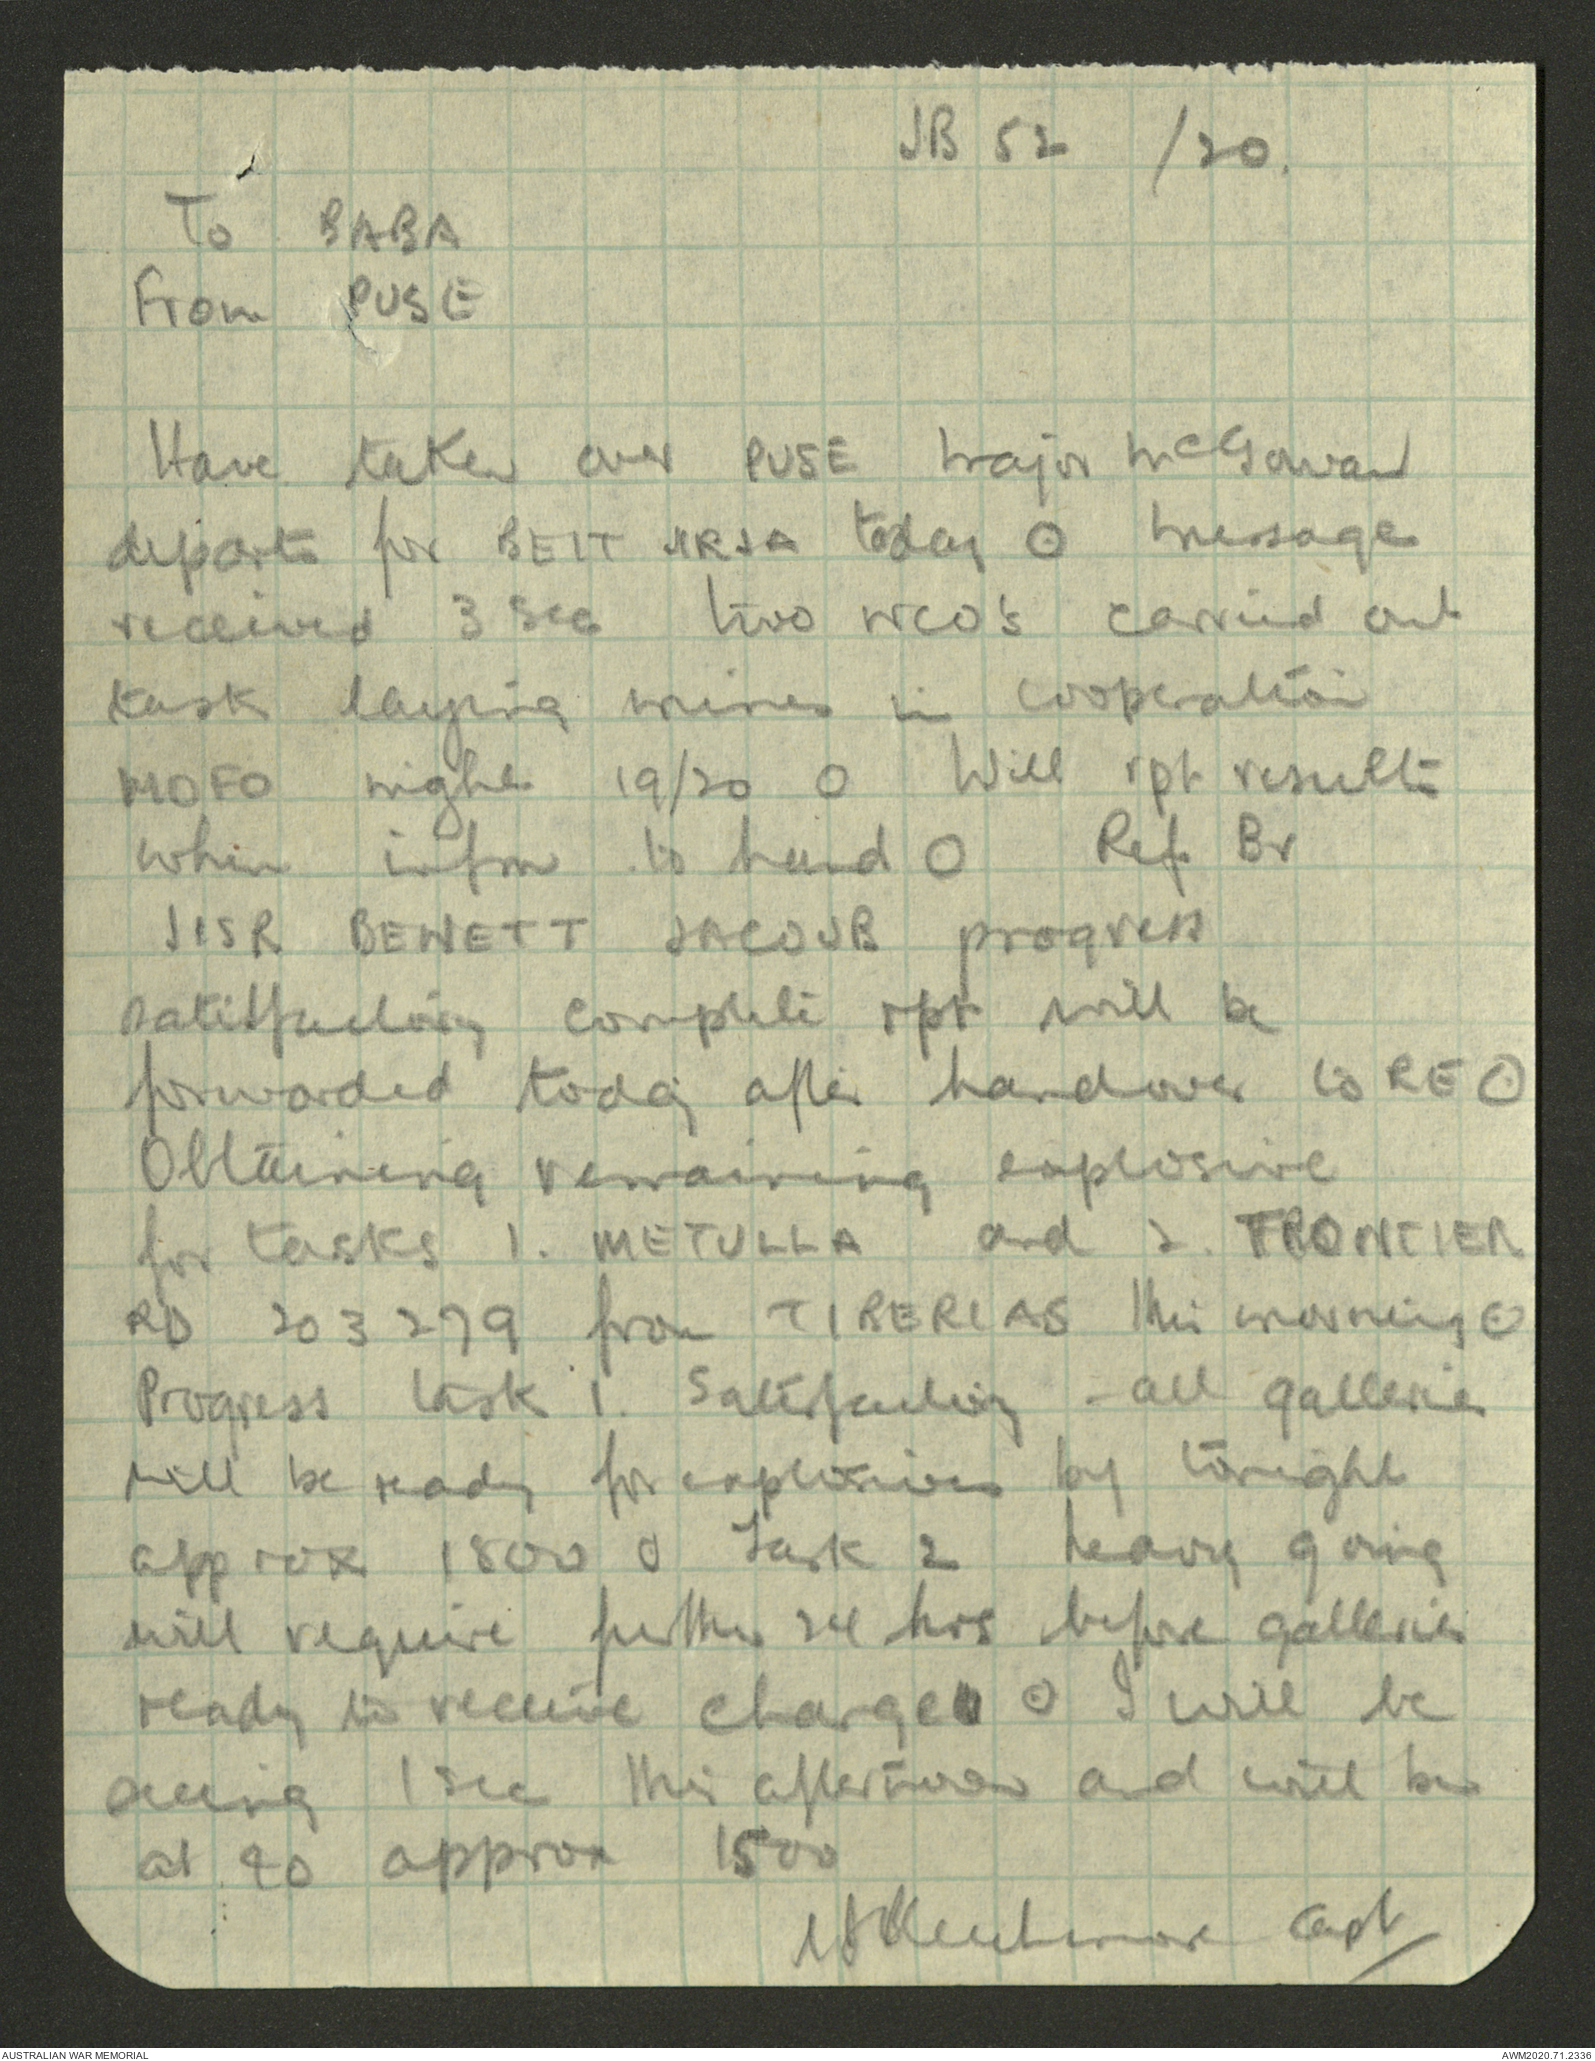 JB 52 /20.
To BABA
From PUSE
Have taken over PUSE Major McGowan
departs for BEIT JIRJA today O message
received 3 Sec two NCO's carried out
task laying mines in cooperation
MOFO night 19/20 O Will rpt results
when infm to hand O Ref Br
JISR BENETT JACOUB progress
satisfactory complete rpt will be
forwarded today after handover to RE O
Obtaining remaining explosive
for tasks 1. METULLA and 2. FRONTIER
RD 203279 from TIBERIAS this morning O
Progress task 1. Satisfactory - all galleries
will be ready for explosives by tonight
approx 1800 O Task 2 heavy going
will require further 24 hrs before galleries
ready to receive charge O I will be
seeing 1 Sec this afternoon and will be
at approx 1500
Capt
AUSTRALIAN WAR MEMORIAL
AWM2020.71.2336